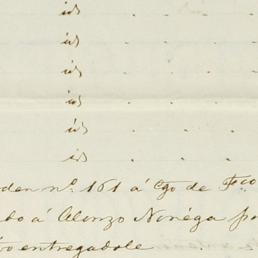 id . . .
id . . .
id . . .
id . . .
id . . .
id . . .
den nº 161 á cgo de Fco
do á Alonzo Noriéga po
entregadole